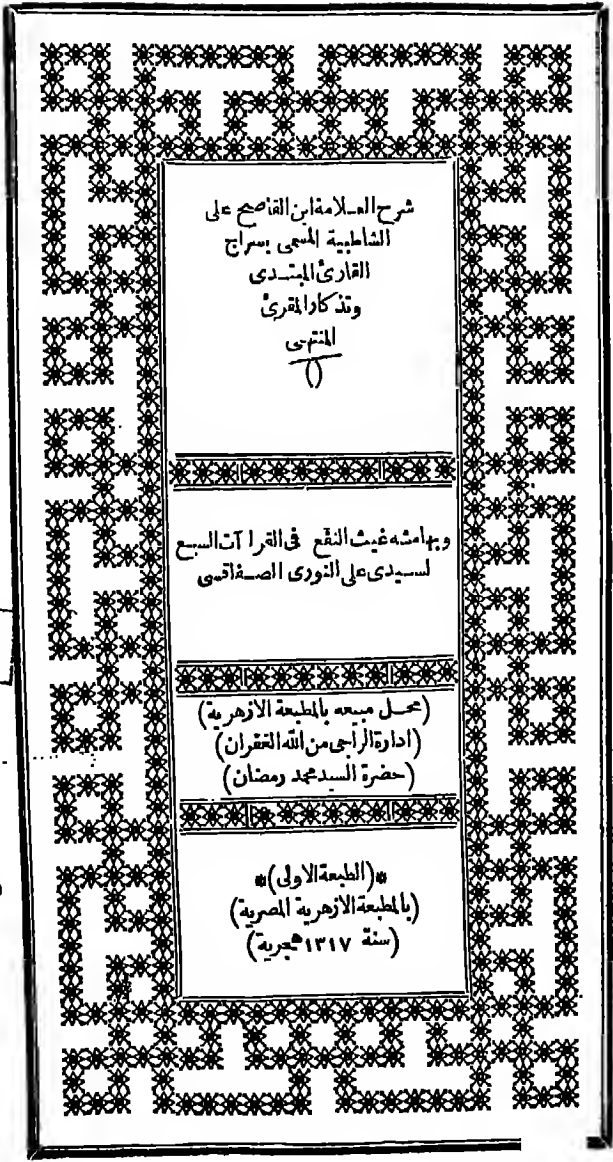 شرح العلامة ابن القاصح على
الشاطبية المسمى بسراج
القارئ المبتدى
وتذكار المقرئ
المنتهى
وبهامشه غيث النفع في القراآت السبع
لسيدى على النورى الصفاقسى
(محل مبيعه بالمطبعة الازهرية)
(ادارة الراجى من الله الغفران)
(حضرة السيد محمد رمضان)
*(الطبعة الاولى)*
(بالمطبعة الازهرية المصرية)
(سنة ١٣١٧ هجرية)